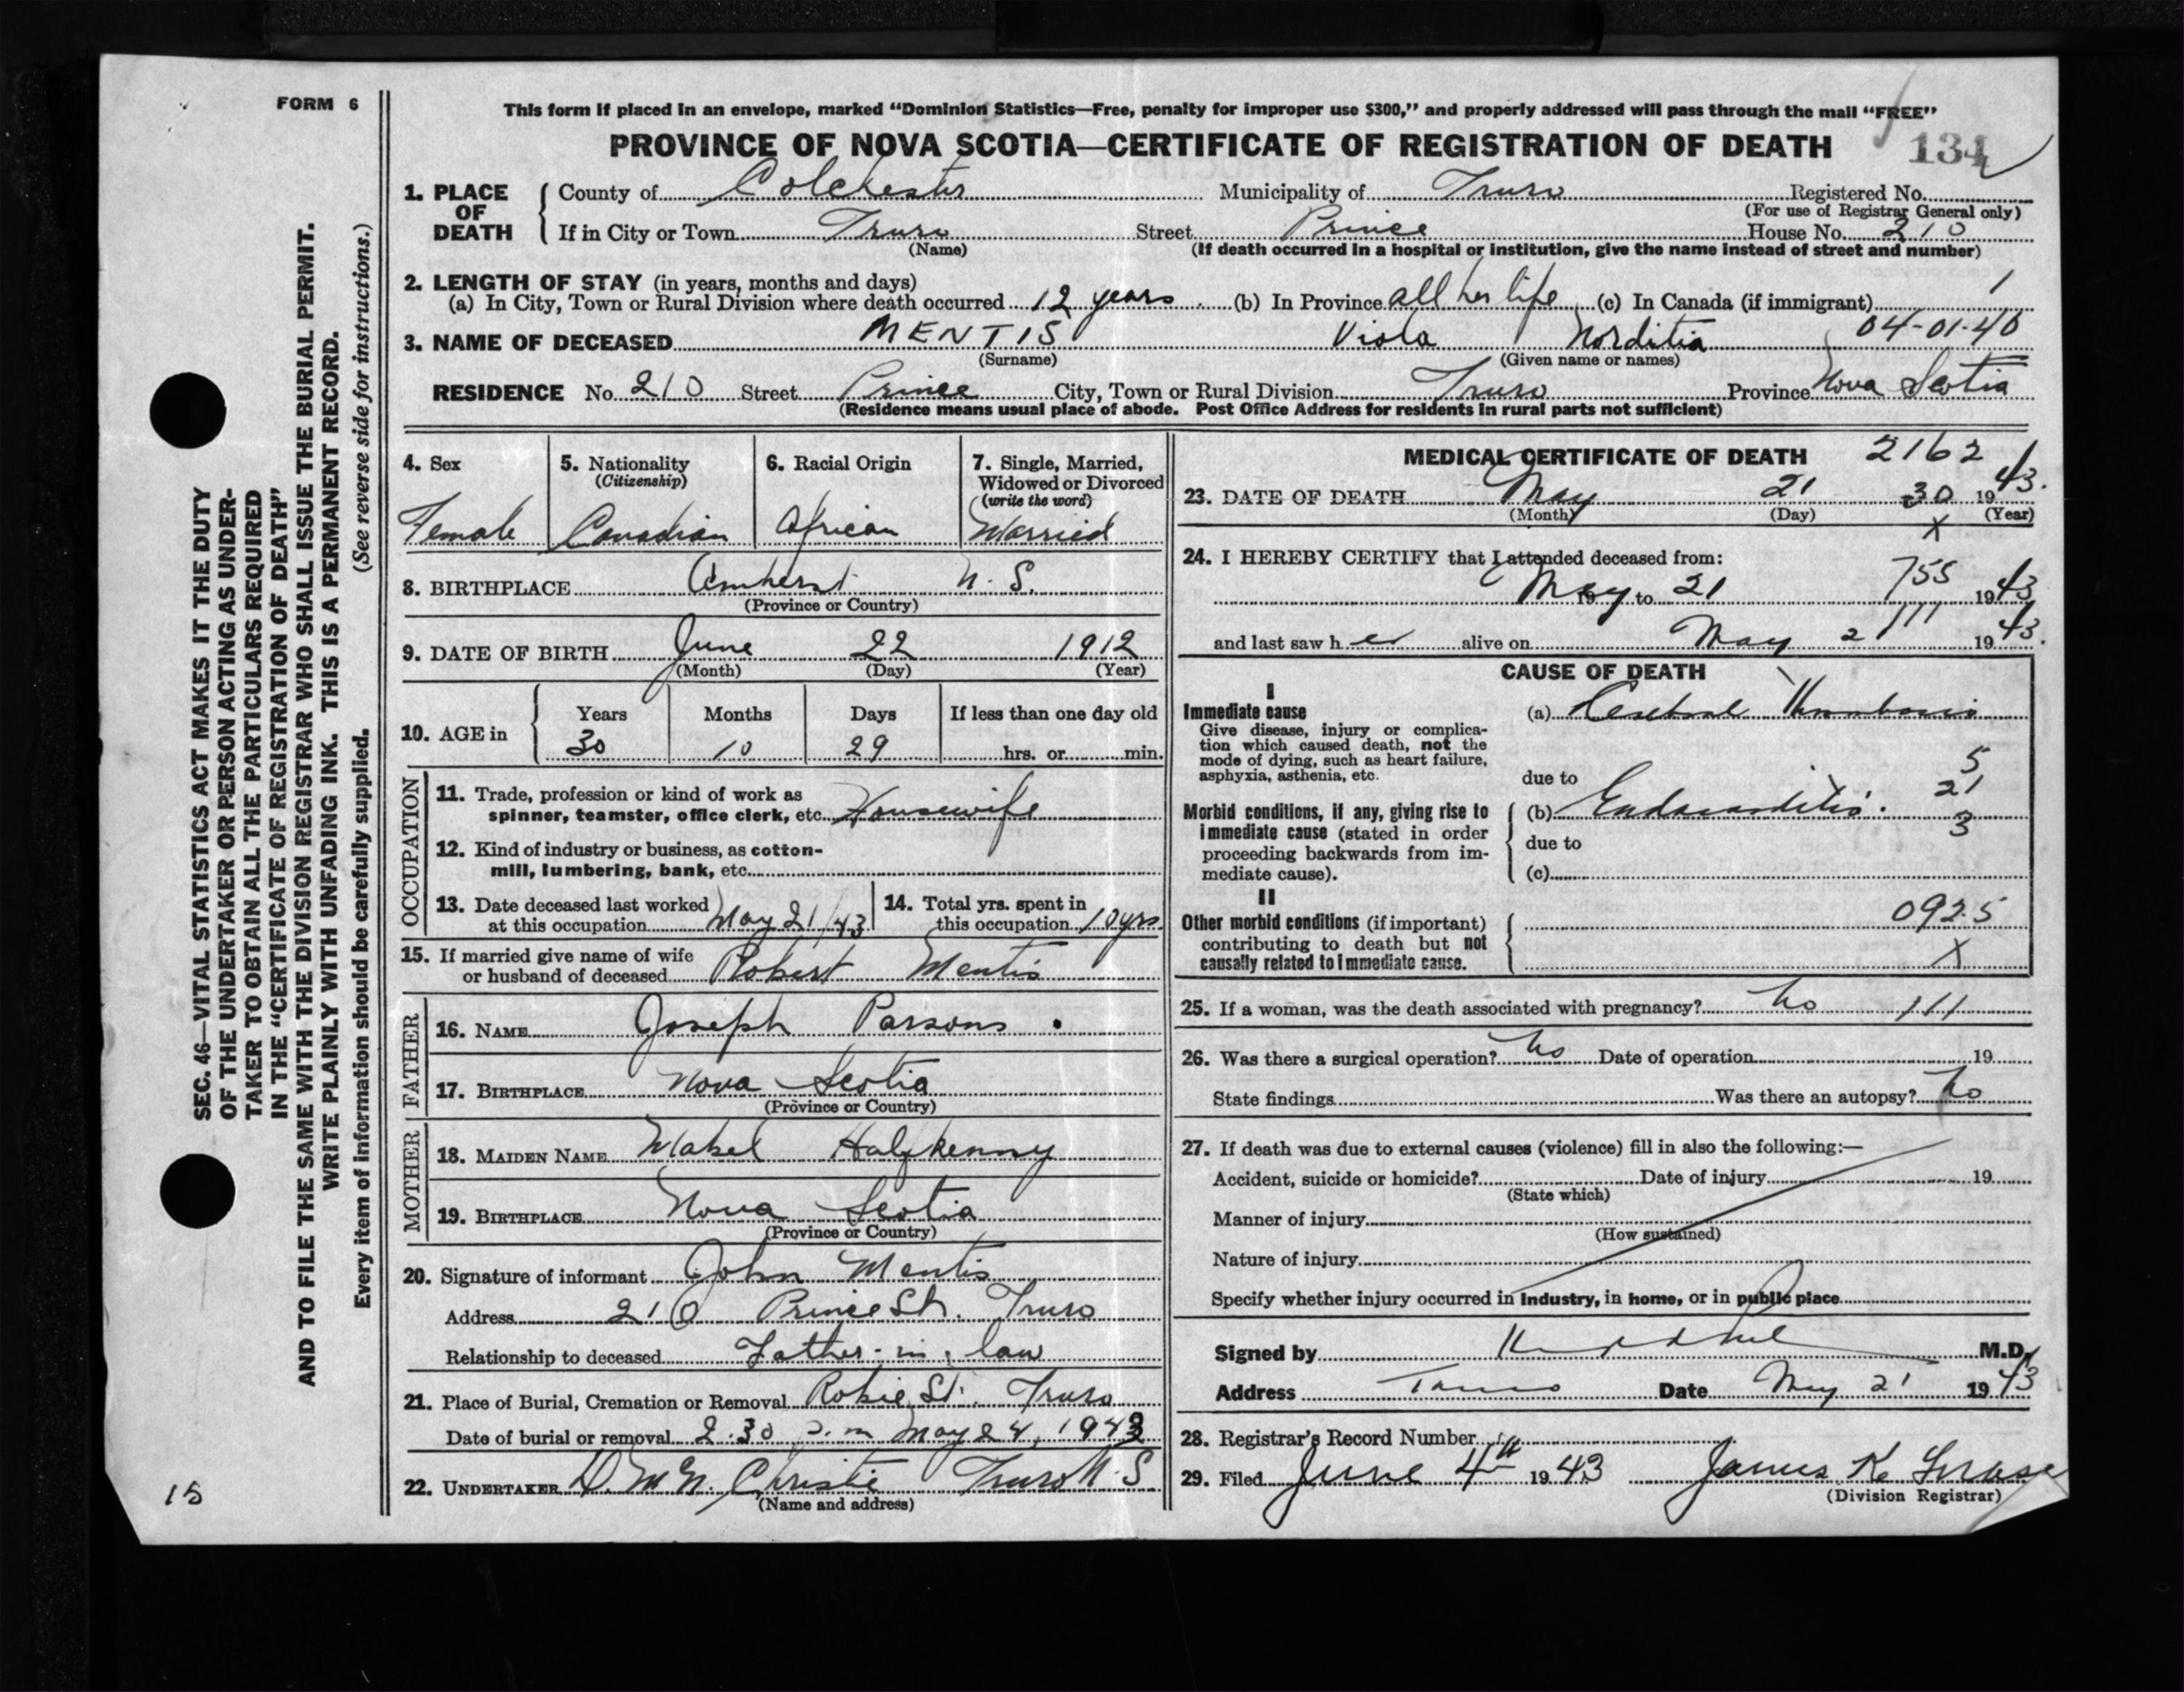 FORM 6
This form if placed in an envelope, marked “Dominion Statistics—Free, penalty for improper use $300,” and properly addressed will pass through the mail “FREE”
PROVINCE OF NOVA SCOTIA—CERTIFICATE OF REGISTRATION OF DEATH
134
1. PLACE OF DEATH
County of Colchester Municipality of Truro Registered No.
(For use of Registrar General only)
If in City or Town Truro Street Prince House No. 210
(Name) (If death occurred in a hospital or institution, give the name instead of street and number)
2. LENGTH OF STAY (in years, months and days)
(a) In City, Town or Rural Division where death occurred 12 years (b) In Province all her life (c) In Canada (if immigrant) 1
3. NAME OF DECEASED MENTIS Viola Norditia 04-01-40
(Surname) (Given name or names)
RESIDENCE No. 210 Street Prince City, Town or Rural Division Truro Province Nova Scotia
(Residence means usual place of abode. Post Office Address for residents in rural parts not sufficient)
4. Sex
Female
5. Nationality
(Citizenship)
Canadian
6. Racial Origin
African
7. Single, Married,
Widowed or Divorced
(write the word)
Married
8. BIRTHPLACE Amherst N. S.
(Province or Country)
9. DATE OF BIRTH June 22 1912
(Month) (Day) (Year)
10. AGE in
Years Months Days If less than one day old
30 10 29 hrs. or min.
OCCUPATION
11. Trade, profession or kind of work as
spinner, teamster, office clerk, etc. Housewife
12. Kind of industry or business, as cotton-
mill, lumbering, bank, etc.
13. Date deceased last worked
at this occupation May 21/43
14. Total yrs. spent in
this occupation 10 yrs.
15. If married give name of wife
or husband of deceased Robert Mentis
FATHER
16. NAME Joseph Parsons
17. BIRTHPLACE Nova Scotia
(Province or Country)
MOTHER
18. MAIDEN NAME Mabel Halfkenny
19. BIRTHPLACE Nova Scotia
(Province or Country)
20. Signature of informant John Mentis
Address 210 Prince St. Truro
Relationship to deceased Father-in-law
21. Place of Burial, Cremation or Removal Robie St. Truro
Date of burial or removal 2.30 p.m May 24, 1943
22. UNDERTAKER D. McN. Christie Truro N.S
(Name and address)
MEDICAL CERTIFICATE OF DEATH 2162
23. DATE OF DEATH May 21 30 1943.
(Month) (Day) (Year)
X
24. I HEREBY CERTIFY that I attended deceased from:
May 19 to 21 755 1943
and last saw her alive on May 21 111 1943.
CAUSE OF DEATH
I
Immediate cause
Give disease, injury or complica-
tion which caused death, not the
mode of dying, such as heart failure,
asphyxia, asthenia, etc.
(a) Cerebral Thrombosis
due to 5
21
Morbid conditions, if any, giving rise to
immediate cause (stated in order
proceeding backwards from im-
mediate cause).
(b) Endocarditis. 3
due to
(c)
II
Other morbid conditions (if important)
contributing to death but not
causally related to immediate cause.
092.5
X
25. If a woman, was the death associated with pregnancy? No 111
26. Was there a surgical operation? No Date of operation 19
State findings Was there an autopsy? No
27. If death was due to external causes (violence) fill in also the following:—
Accident, suicide or homicide? Date of injury 19
(State which)
Manner of injury
(How sustained)
Nature of injury
Specify whether injury occurred in industry, in home, or in public place
Signed by M.D.
Address Truro Date May 21 1943
28. Registrar's Record Number
29. Filed June 4th 1943 James K.
(Division Registrar)
SEC. 46—VITAL STATISTICS ACT MAKES IT THE DUTY
OF THE UNDERTAKER OR PERSON ACTING AS UNDER-
TAKER TO OBTAIN ALL THE PARTICULARS REQUIRED
IN THE “CERTIFICATE OF REGISTRATION OF DEATH”
AND TO FILE THE SAME WITH THE DIVISION REGISTRAR WHO SHALL ISSUE THE BURIAL PERMIT.
WRITE PLAINLY WITH UNFADING INK. THIS IS A PERMANENT RECORD.
Every item of information should be carefully supplied. (See reverse side for instructions.)
15